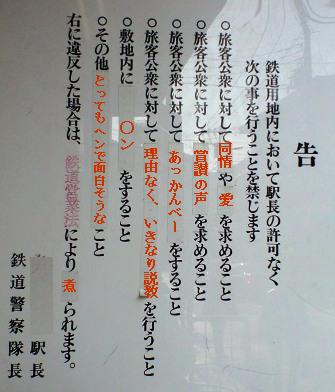 告
鉄道用地内において駅長の許可なく
次の事を行うことを禁じます
○旅客公衆に対して同情や愛を求めること
○旅客公衆に対して賞讃の声を求めること
○旅客公衆に対してあっかんべーをすること
○旅客公衆に対して理由なく、いきなり説教を行うこと
○敷地内に○ンをすること
○その他とってもヘンで面白そうなこと
右に違反した場合は、鉄道営業法により煮られます。
駅長
鉄道警察隊長